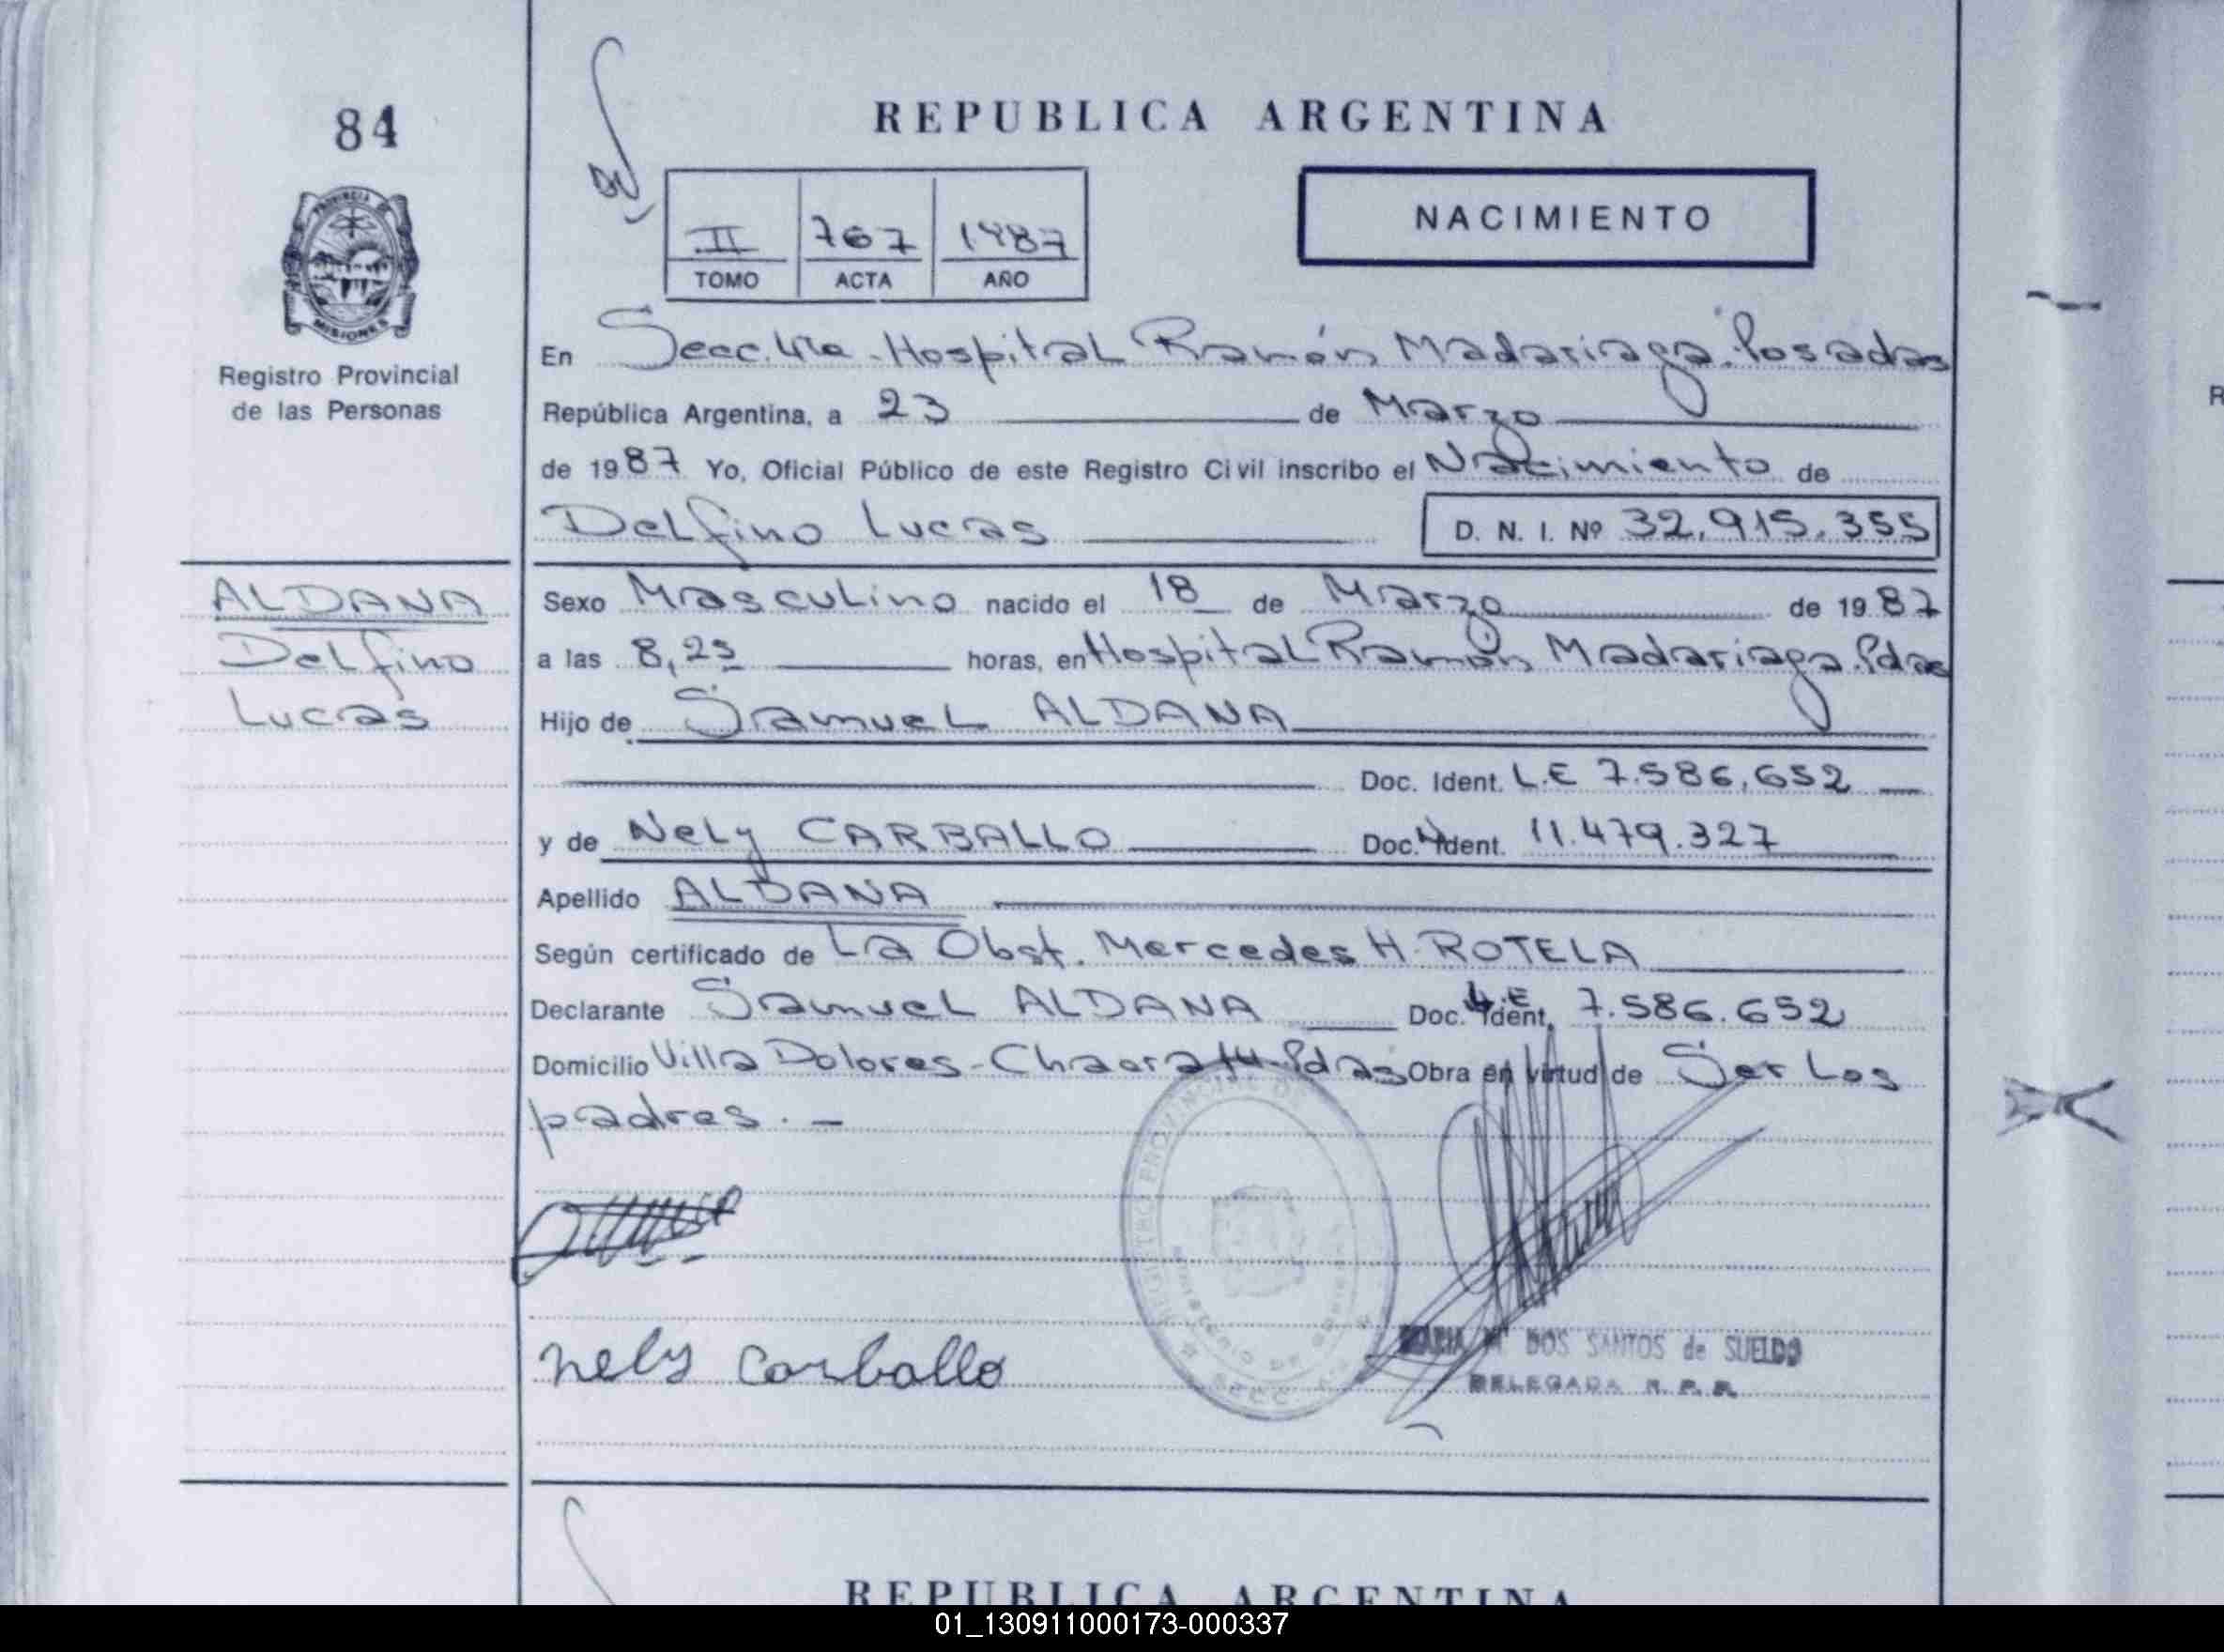 84
REPUBLICA ARGENTINA
II 767 1987
TOMO ACTA AÑO
NACIMIENTO
PROVINCIA DE
MISIONES
Registro Provincial
de las Personas
En Secc. 4ta - Hospital Ramón Madariaga. Posadas
República Argentina, a 23 de Marzo
de 1987 Yo, Oficial Público de este Registro Civil inscribo el Nacimiento de
Delfino Lucas D. N. I. Nº 32.915.355
ALDANA
Delfino
Lucas
Sexo Masculino nacido el 18 de Marzo de 1987
a las 8,25 horas, en Hospital Ramón Madariaga. Pdas
Hijo de Samuel ALDANA
Doc. Ident. L.E 7.586.652
y de Nely CARBALLO Doc. Ident. 11.479.327
Apellido ALDANA
Según certificado de La Obst. Mercedes H. ROTELA
Declarante Samuel ALDANA Doc. Ident. L.E 7.586.652
Domicilio Villa Dolores - Chacra 14 - Pdas Obra en virtud de Ser Los
padres. -
nely Carballo
MARIA M DOS SANTOS de SUELDO
DELEGADA R. P. P.
REPUBLICA ARGENTINA
01_130911000173-000337